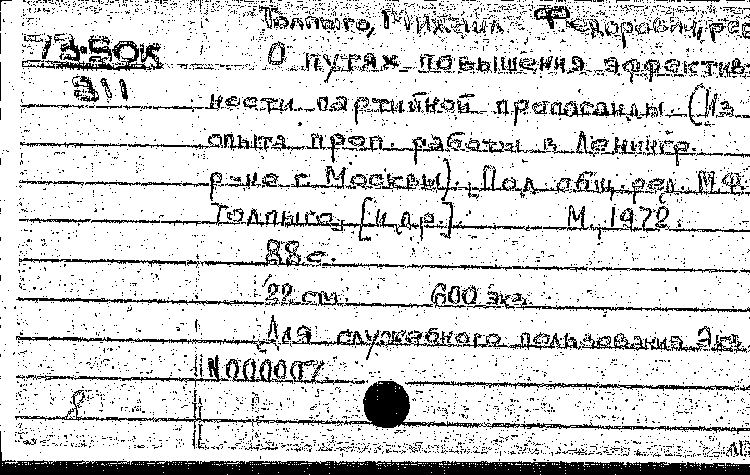 Толпыго, Михаил Федорович, рес
73-50к О путях повышения эффектив-
311
ности партийной пропаганды. (Из
опыта проп. работы в Ленингр.
р-не г. Москвы). Под общ. ред. М.Ф.
Толпыго, [и др.]. М., 1972.
88 с.
22 см. 600 экз.
Для служебного пользования Экз.
N000007